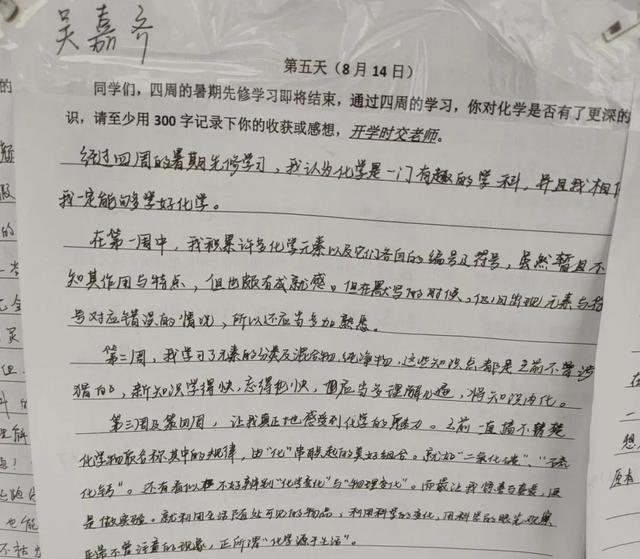 吴嘉齐
第五天（8月14日）
同学们，四周的暑期先修学习即将结束，通过四周的学习，你对化学是否有了更深的
识，请至少用300字记录下你的收获或感想，开学时交老师。
经过四周的暑期先修学习，我认为化学是一门有趣的学科，并且我相信
我一定能够学好化学。
在第一周中，我积累许多化学元素以及它们各自的编号及符号，虽然暂且不
知其作用与特点，但也颇有成就感。但在默写的时候，仍旧出现元素与符
号对应错误的情况，所以还应当多加熟悉。
第二周，我学习了元素的分类及混合物，纯净物，这些知识点都是之前不曾涉
猎的，新知识学得快，忘得也快，应当多理解，将知识内化。
第三周及第四周，让我真正地感受到化学的魅力。之前一直搞不清楚
化学物质名称其中的规律，由“化”串联起的美好组合。就好“二氧化碳”、
化钙”。还有看似不好辨别“化学变化”与“物理变化”。而最让我惊喜的
是做实验。就利用生活随处可见的物品，利用科学的变化，用科学的眼光观察
正常不曾注意的现象，正所谓“化学源于生活”。